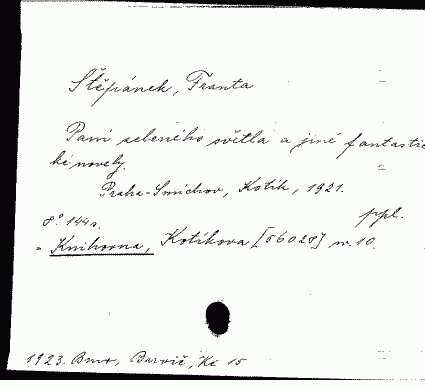 Štěpánek, Franta
Paní zeleného světla a jiné fantastic
ké novely.
Praha-Smíchov, Kotík, 1921.
ppl.
8° 144 s.
= Knihovna, Kotíkova [56028] sv. 10.
1923. Brno, Barvič, Kč 15